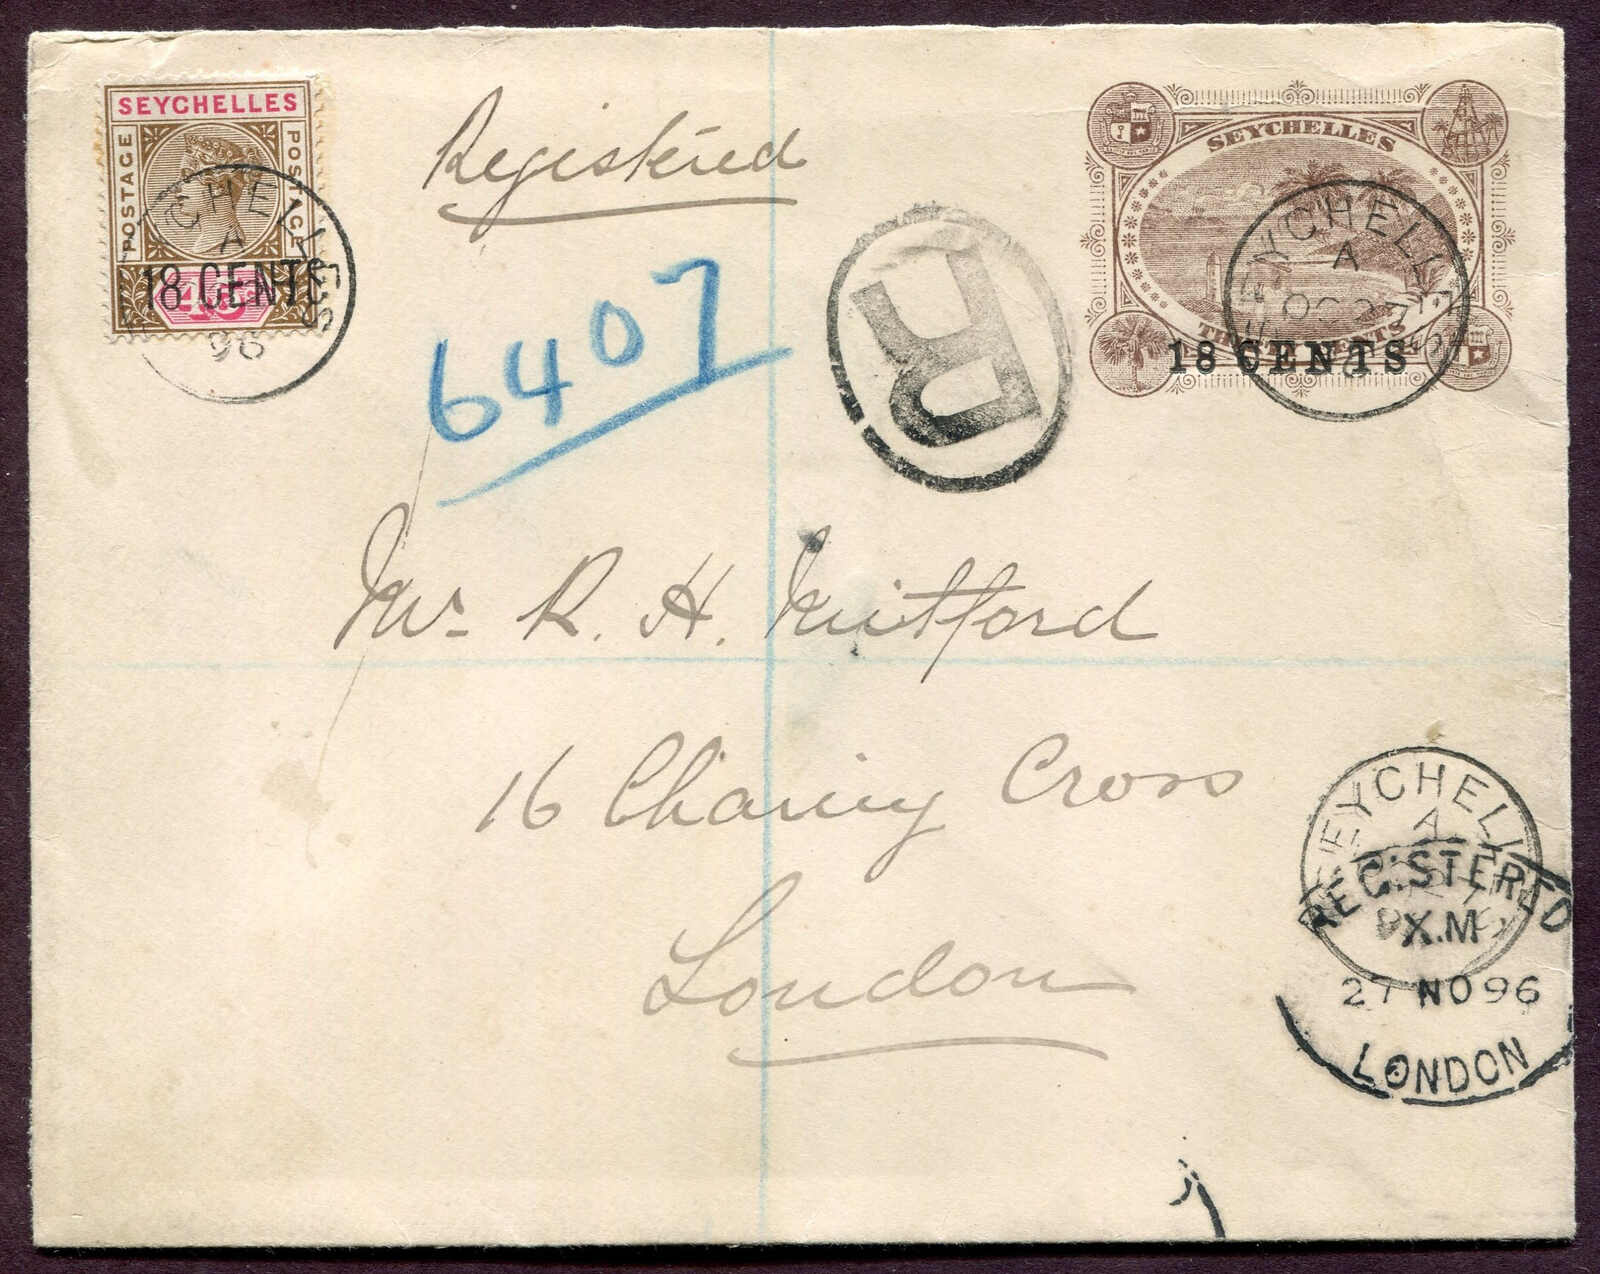 SEYCHELLES
POSTAGE
POSTAGE
18 CENTS
SEYCHELLES
A
96
Registered
6407
R
SEYCHELLES
THIRTY CENTS
18 CENTS
SEYCHELLES
A
OC 27
Mr R. H. Mitford
16 Charing Cross
London
SEYCHELL
A
REGISTERED
X.M
27 NO 96
LONDON